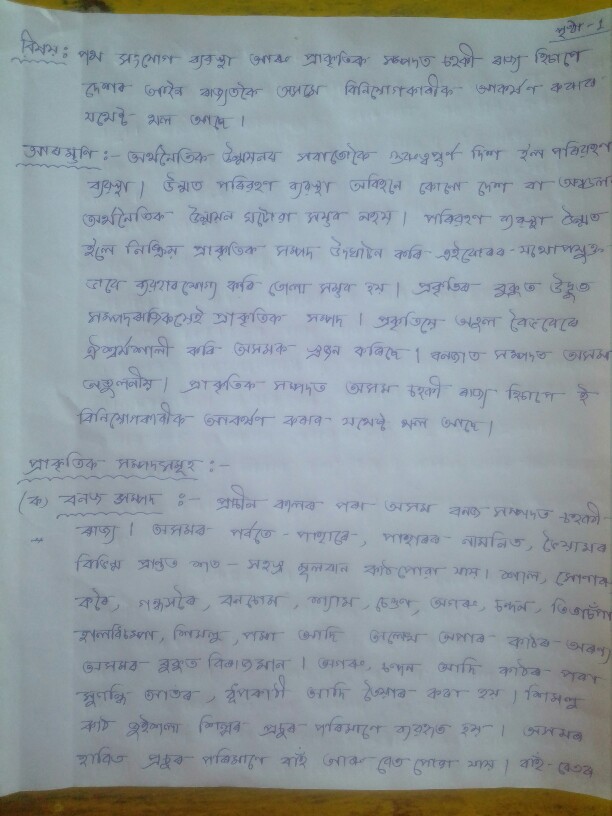 পৃষ্ঠা - 1
বিষয় : পথ সংযোগ ব্যৱস্থা আৰু প্ৰাকৃতিক সম্পদত চহকী ৰাজ্য হিচাপে
দেশৰ আইন ৰাজ্যতকৈ অসমে বিনিয়োগকাৰীক আকৰ্ষণ কৰাৰ
যথেষ্ট থল আছে ।
আৰম্ভণি :- অৰ্থনৈতিক উন্নয়নৰ সবাতোকৈ গুৰুত্বপূৰ্ণ দিশ হ'ল পৰিবহণ
ব্যৱস্থা । উন্নত পৰিবহণ ব্যৱস্থা অবিহনে কোনো দেশ বা অঞ্চলৰ
অৰ্থনৈতিক উন্নয়ন ঘটোৱা সম্ভৱ নহয় । পৰিবহণ ব্যৱস্থা উন্নত
হ'লে নিষ্ক্ৰিয় প্ৰাকৃতিক সম্পদ উদঘাটন কৰি এইবোৰৰ যথোপযুক্ত
ভাবে ব্যৱহাৰযোগ্য কৰি তোলা সম্ভৱ হয় । প্ৰকৃতিৰ বুকুত উদ্ভূত
সম্পদৰাজিকেই প্ৰাকৃতিক সম্পদ । প্ৰকৃতিয়ে অতুল বৈভৱেৰে
ঐশ্বৰ্যশালী কৰি অসমক কৰিছে । বনজাত সম্পদত অসম
অতুলনীয় । প্ৰাকৃতিক সম্পদত অসম চহকী ৰাজ্য হিচাপে ই
বিনিয়োগকাৰীক আকৰ্ষণ কৰাৰ যথেষ্ট থল আছে ।
প্ৰাকৃতিক সম্পদসমূহ :-
(ক) বনজ সম্পদ :- প্ৰাচীন কালৰ পৰা অসম বনজ সম্পদত চহকী
ৰাজ্য । অসমৰ পৰ্বতে-পাহাৰে, পাহাৰৰ নামনিত, ভৈয়ামৰ
বিভিন্ন প্ৰান্তত শত-সহস্ৰ মূল্যবান কাঠ পোৱা যায় । শাল, সোণাৰু
গন্ধসৰৈ, বনচোম, শ্যাম, চেগুণ, অগৰু, চন্দন, তিতাচঁপা
শিমলু, পমা আদি অলেখ অপাৰ কাঠৰ অৰণ্য
অসমৰ বুকুত বিৰাজমান । অগৰু, চন্দন আদি কাঠৰ পৰা
সুগন্ধি আতৰ, ধূপকাঠী আদি তৈয়াৰ কৰা হয় । শিমলু
কাঠ জুইশলা শিল্পৰ প্ৰচুৰ পৰিমাণে ব্যৱহৃত হয় । অসমৰ
হাবিত প্ৰচুৰ পৰিমাণে বাঁহ আৰু বেত পোৱা যায় । বাঁহ-বেতৰ